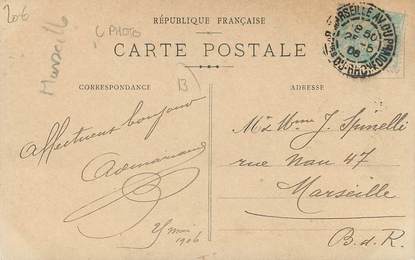 206
Marseille
C PHOTO
B
RÉPUBLIQUE FRANÇAISE
CARTE POSTALE
CORRESPONDANCE
ADRESSE
Affectueux bonjour
25 mai
1906
J. Spinelli
rue Nau 47
Marseille
B. d. R.